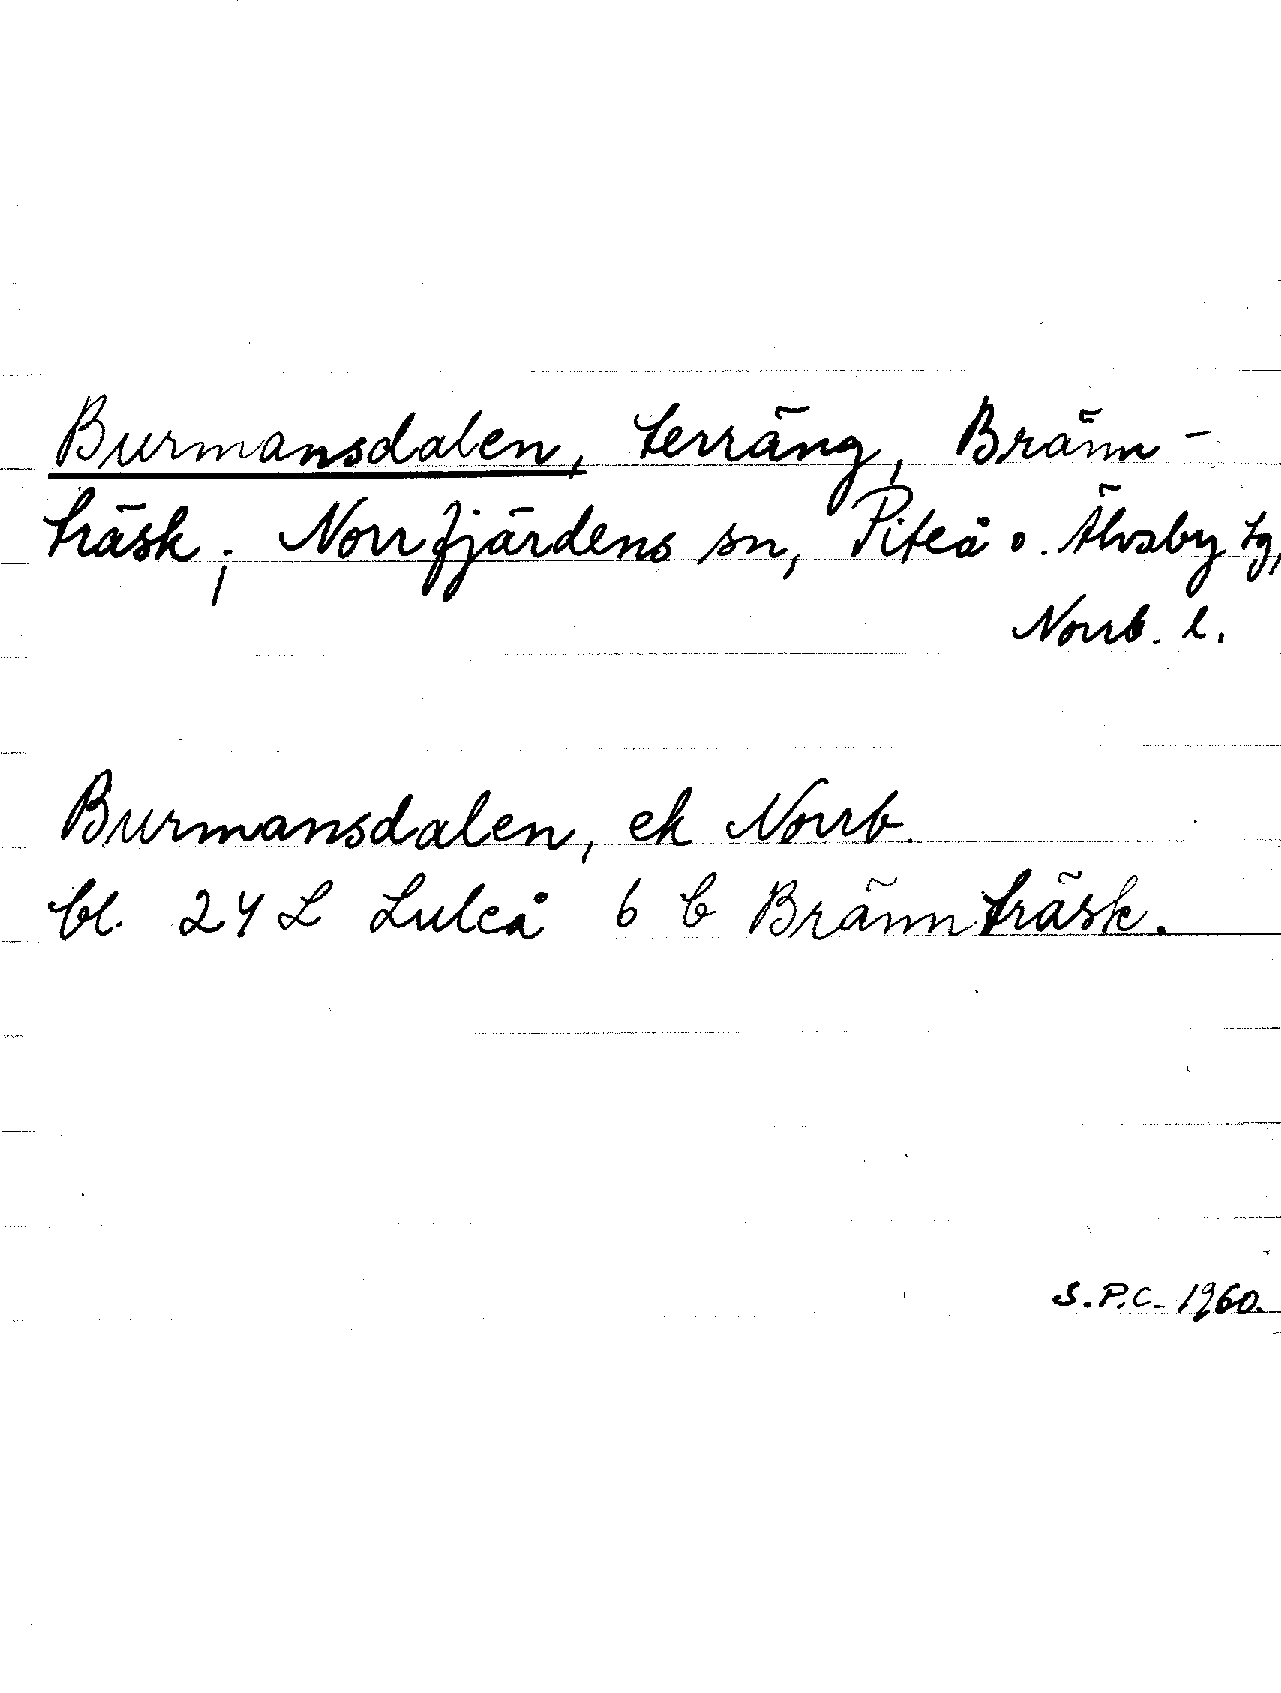 Burmansdalen, terräng, Bränn-
träsk; Norrfjärdens sn, Piteå o. Älvsby tg,
Norrb. l.
Burmansdalen, ek Norrb.
bl. 24 L Luleå 6 b Brännträsk.
S.P.C. 1960.